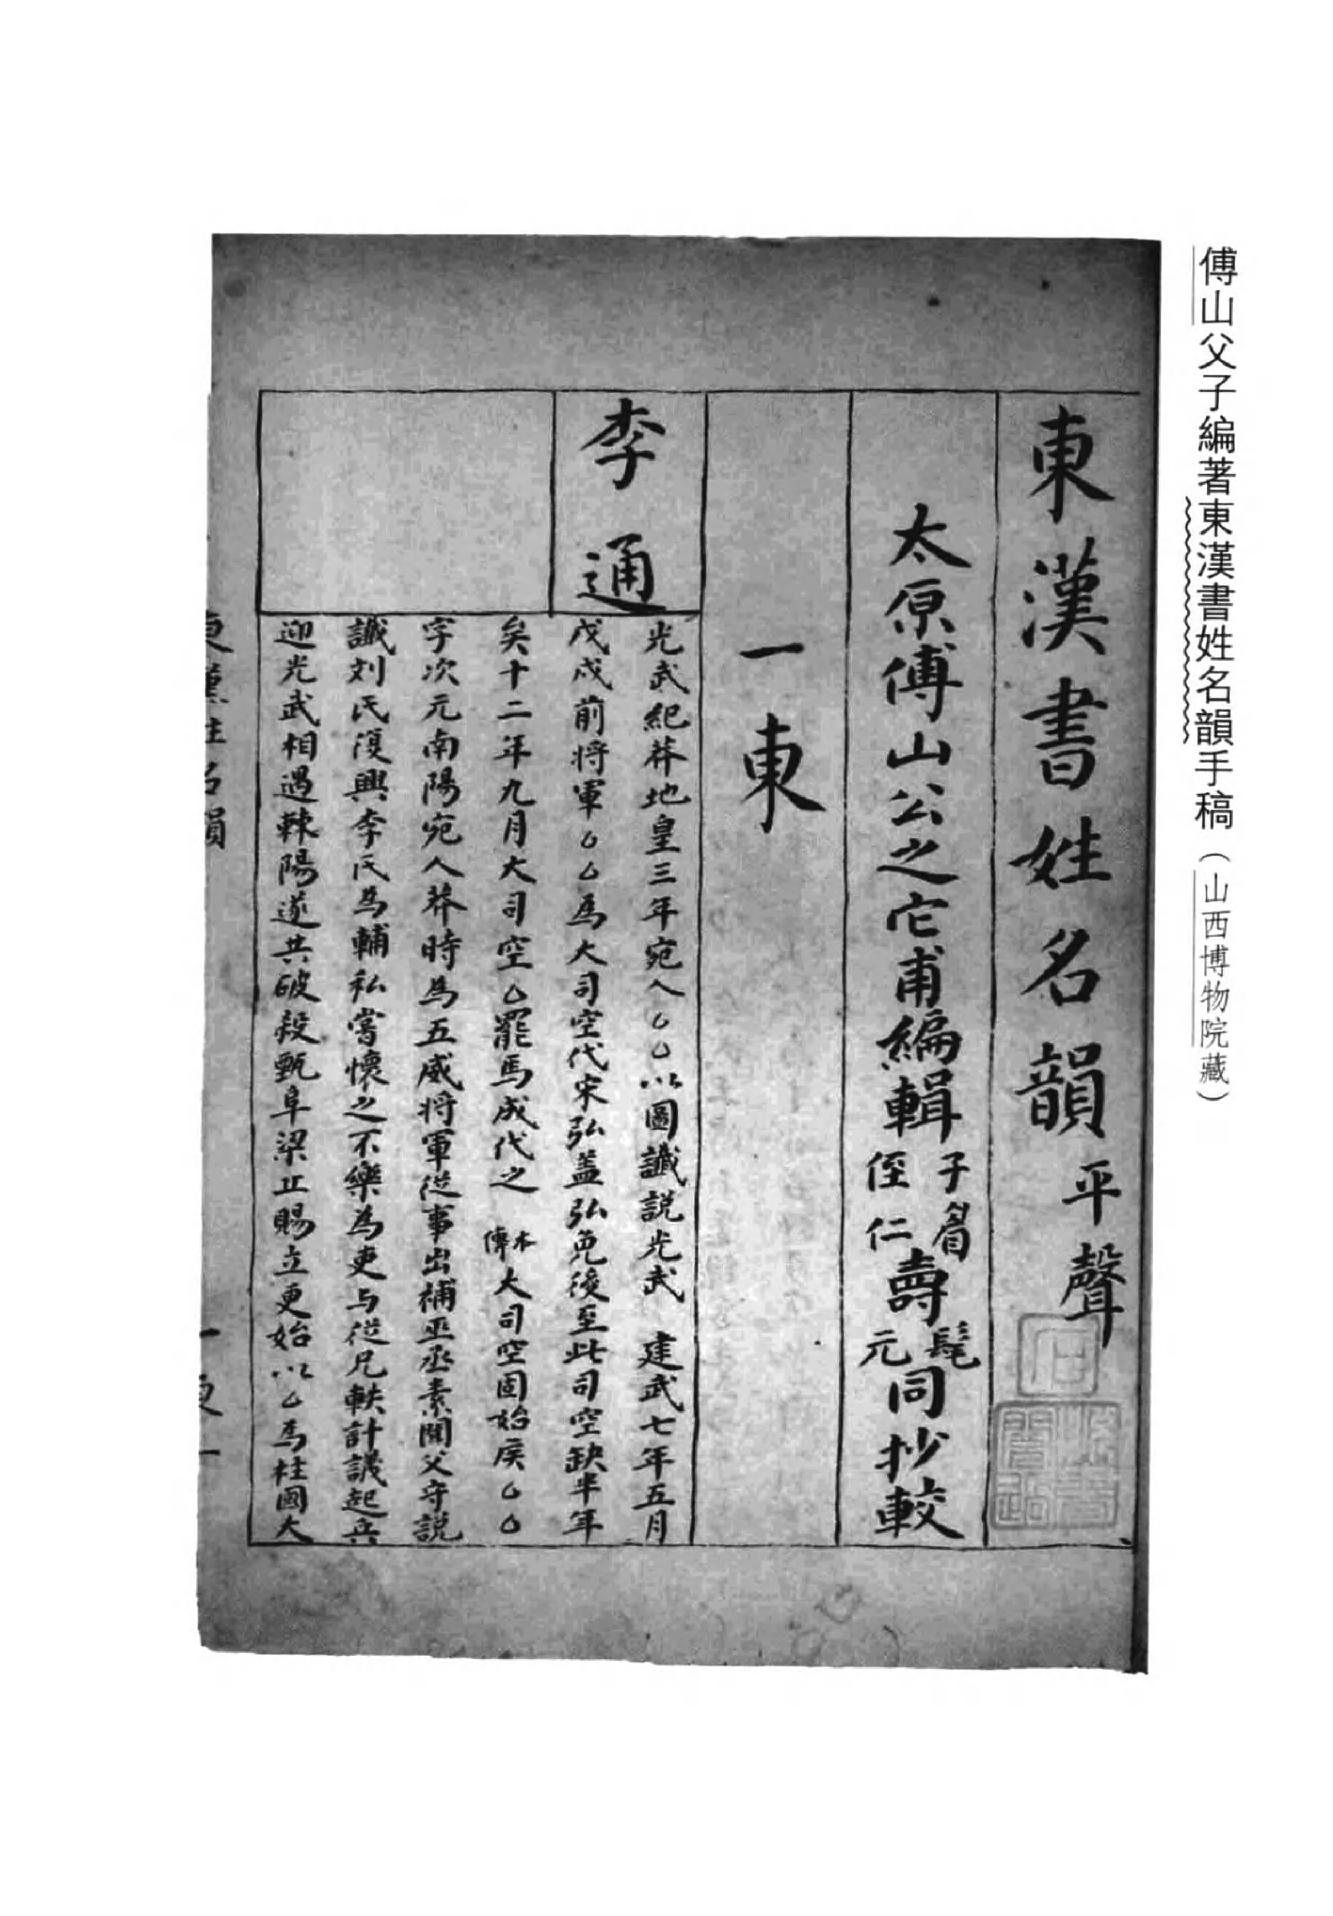 傅山父子編著東漢書姓名韻手稿（山西博物院藏）
東漢書姓名韻平聲
太原傅山公之它甫編輯子眉侄仁壽髦元同抄較
一東
李通
光武紀莽地皇三年宛人厶厶以圖讖説光武 建武七年五月
戊戌前将軍厶厶爲大司空代宋弘盖弘免後至此司空缺半年
矣十二年九月大司空厶罷馬成代之 本傳 大司空固始侯厶厶
字次元南陽宛人莽時爲五威将軍從事出補巫丞素聞父守説
讖刘氏復興李氏爲輔私嘗懷之不樂爲吏与從兄軼計議起兵
迎光武相遇棘陽遂共破殺甄阜梁丘賜立更始以厶爲柱國大
東漢姓名韻
一東 一